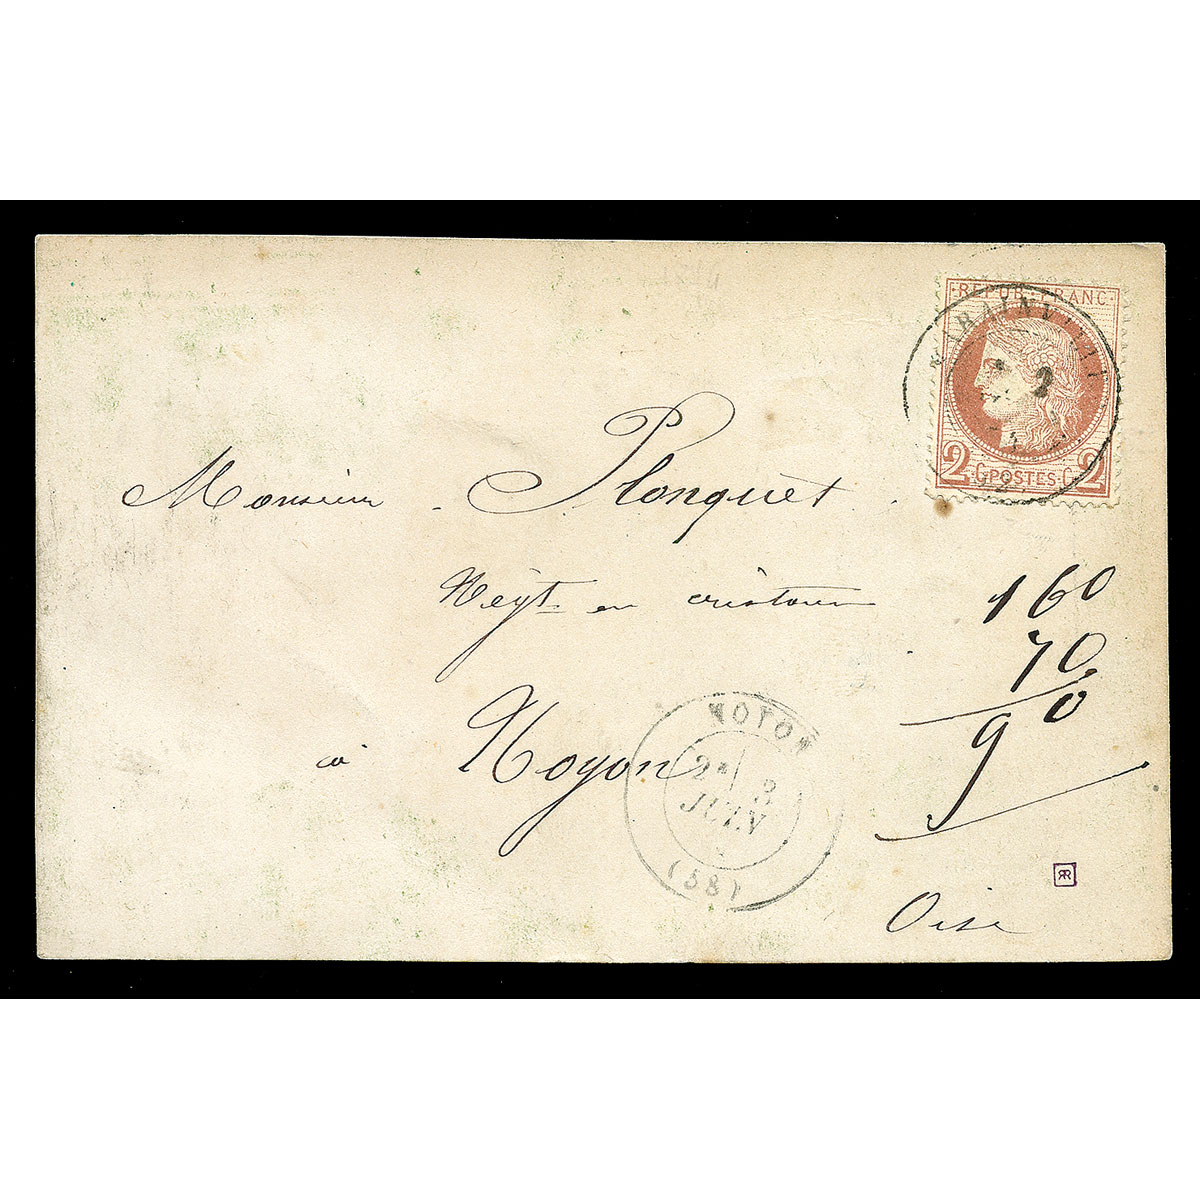 REPUB · FRANC
2 C POSTES C 2
2
Monsieur Plonquet
Négt en
160
70
90
à Noyon
NOYON
2E 2
JUIN
(58)
Oise
RR